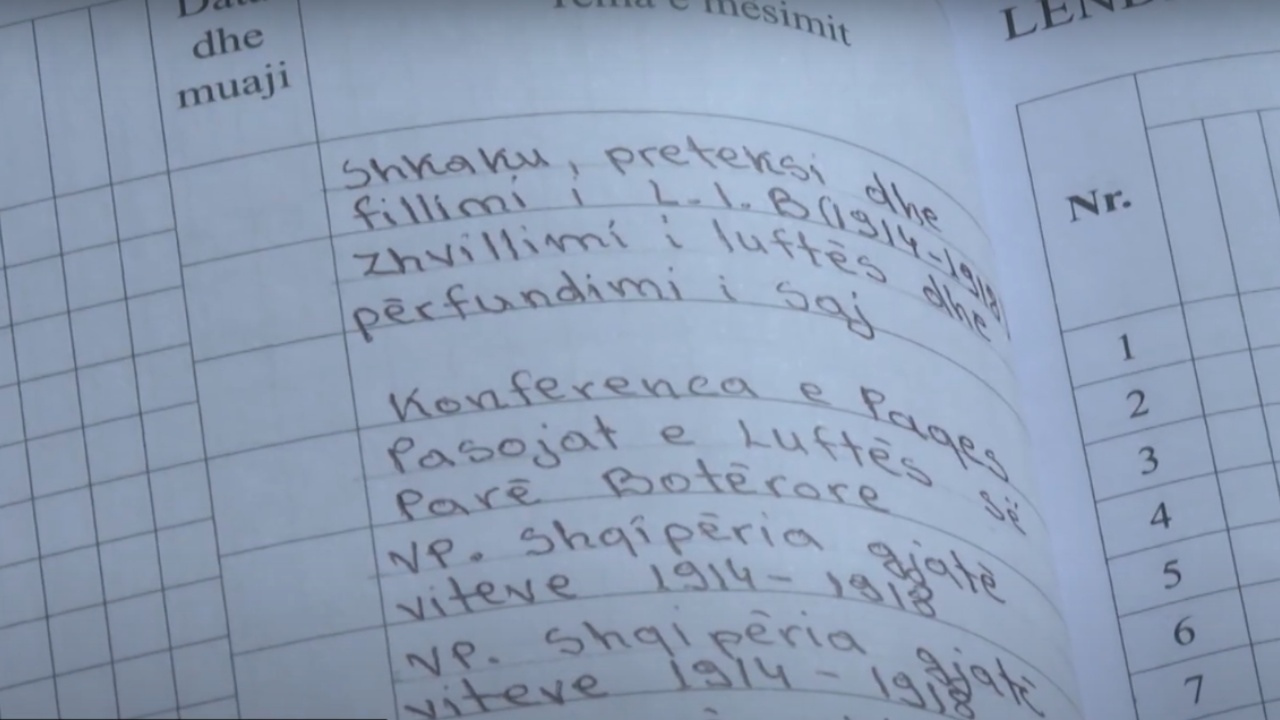 dhe
muaji
Tema e mësimit
Shkaku, preteksi dhe
fillimi i L.I.B(1914-1918
zhvillimi i luftēs dhe
pērfundimi i saj
Konferenca e Pages
Pasojat e Luftēs sē
Parē Botērore
NP. Shqipēria gjatē
viteve 1914-1918
NP. Shqipēria gjatē
viteve 1914-1918
Nr.
1
2
3
4
5
6
7